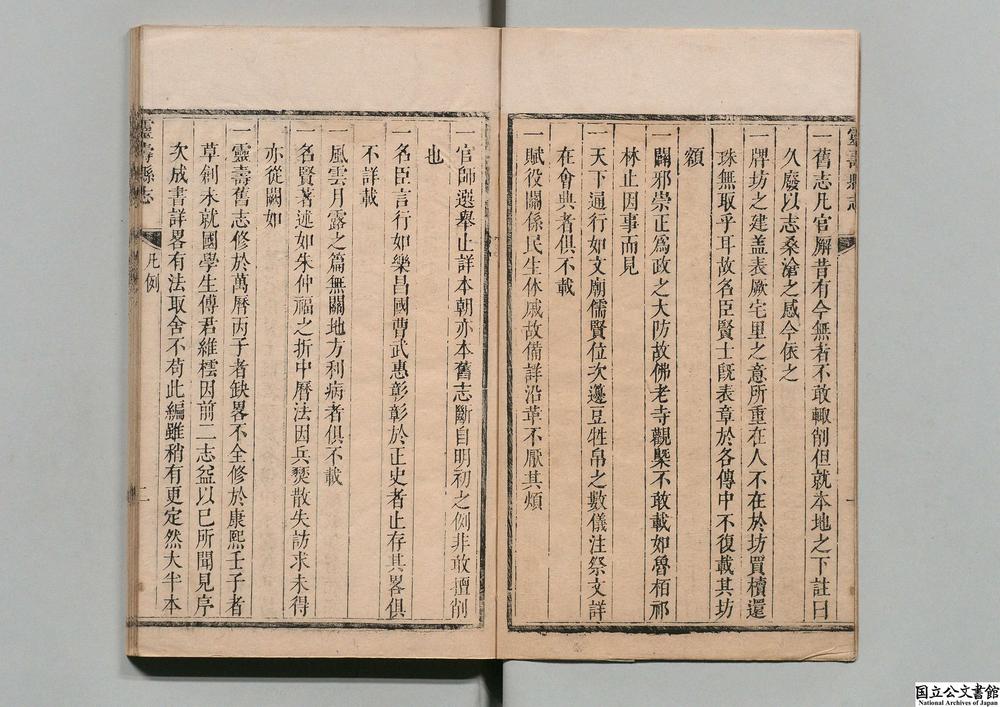 靈壽縣志
一
一舊志凡官廨昔有今無者不敢輙削但就本地之下註曰
久廢以志桑滄之感今依之
一牌坊之建盖表厥宅里之意所重在人不在於坊買櫝還
珠無取乎耳故名臣賢士旣表章於各傳中不復載其坊
額
一闢邪崇正爲政之大防故佛老寺觀槩不敢載如魯栢祁
林止因事而見
一天下通行如文廟儒賢位次籩豆牲帛之數儀注祭文詳
在會典者俱不載
一賦役關係民生休戚故備詳沿革不厭其煩
一官師選舉止詳本朝亦本舊志斷自明初之例非敢擅削
也
一名臣言行如樂昌國曹武惠彰彰於正史者止存其畧俱
不詳載
一風雲月露之篇無關地方利病者俱不載
一名賢著述如朱仲福之折中曆法因兵燹散失訪求未得
亦從闕如
一靈壽舊志修於萬曆丙子者缺畧不全修於康熙壬子者
草創未就國學生傅君維橒因前二志益以已所聞見序
次成書詳畧有法取舍不苟此編雖稍有更定然大半本
靈壽縣志
凡例
二
国立公文書館
National Archives of Japan